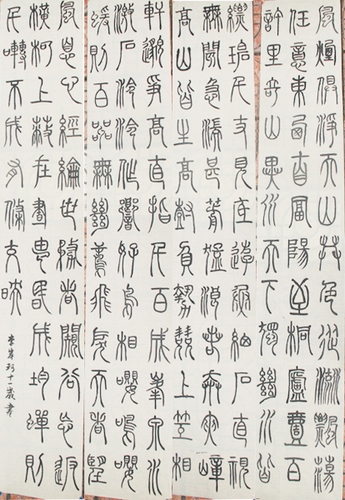 風煙俱淨天山共色從流飄蕩
任意東西自富陽至桐廬百
許里奇山異水天下獨絕水皆
縹碧千丈見底游魚細石直視
無礙急湍甚箭猛浪若奔嶂
高山皆生高樹負勢競上相
軒邈爭高直指千百成峯泉水
激石泠泠作響好鳥相嚶鳴嚶
則百叫無絕鳶飛戾天者望
息心經綸世務者闚谷忘返
橫柯上蔽在晝猶昏成韵蟬則
千囀不成有條交映
十二歲書